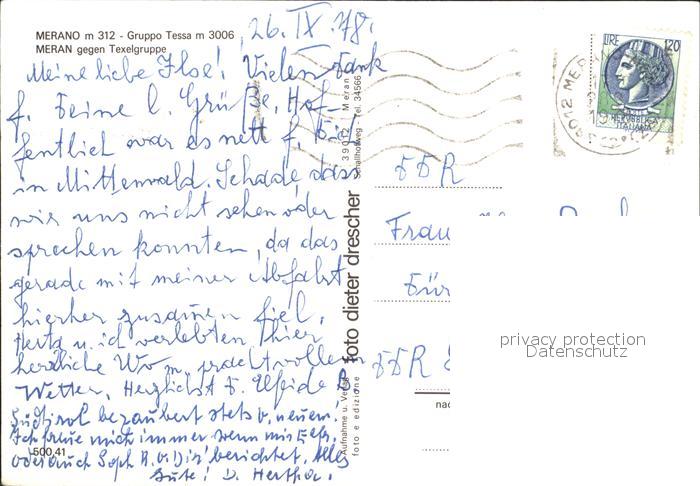 MERANO m 312 - Gruppo Tessa m 3006
MERAN gegen Texelgruppe
26. IX. 78.
Meine liebe Ilse! Vielen Dank
f. Deine l. Grüße. Hof-
fentlich war es nett f. Dich
in Mittenwald. Schade, dass
wir uns nicht sehen oder
sprechen konnten, da das
gerade mit meiner Abfahrt
hierher zusammen fiel.
Herta u. ich verlebten hier
herrliche Wo. m. prachtvollem
Wetter. Herzlichst D. Elfride B.
Südtirol bezaubert stets v. neuem.
Ich freue mich immer wenn mir
oder auch Soph. v. Dir berichtet. Alles
Gute! D. Hertha.
500.41
foto dieter drescher
39012 - Meran
Schallhofweg - Tel. 34566
Aufnahme u. Verlag
foto e edizione
LIRE 120
REPUBBLICA
ITALIANA
39012 MER
DDR
Frau
Für
DDR
nac
privacy protection
Datenschutz